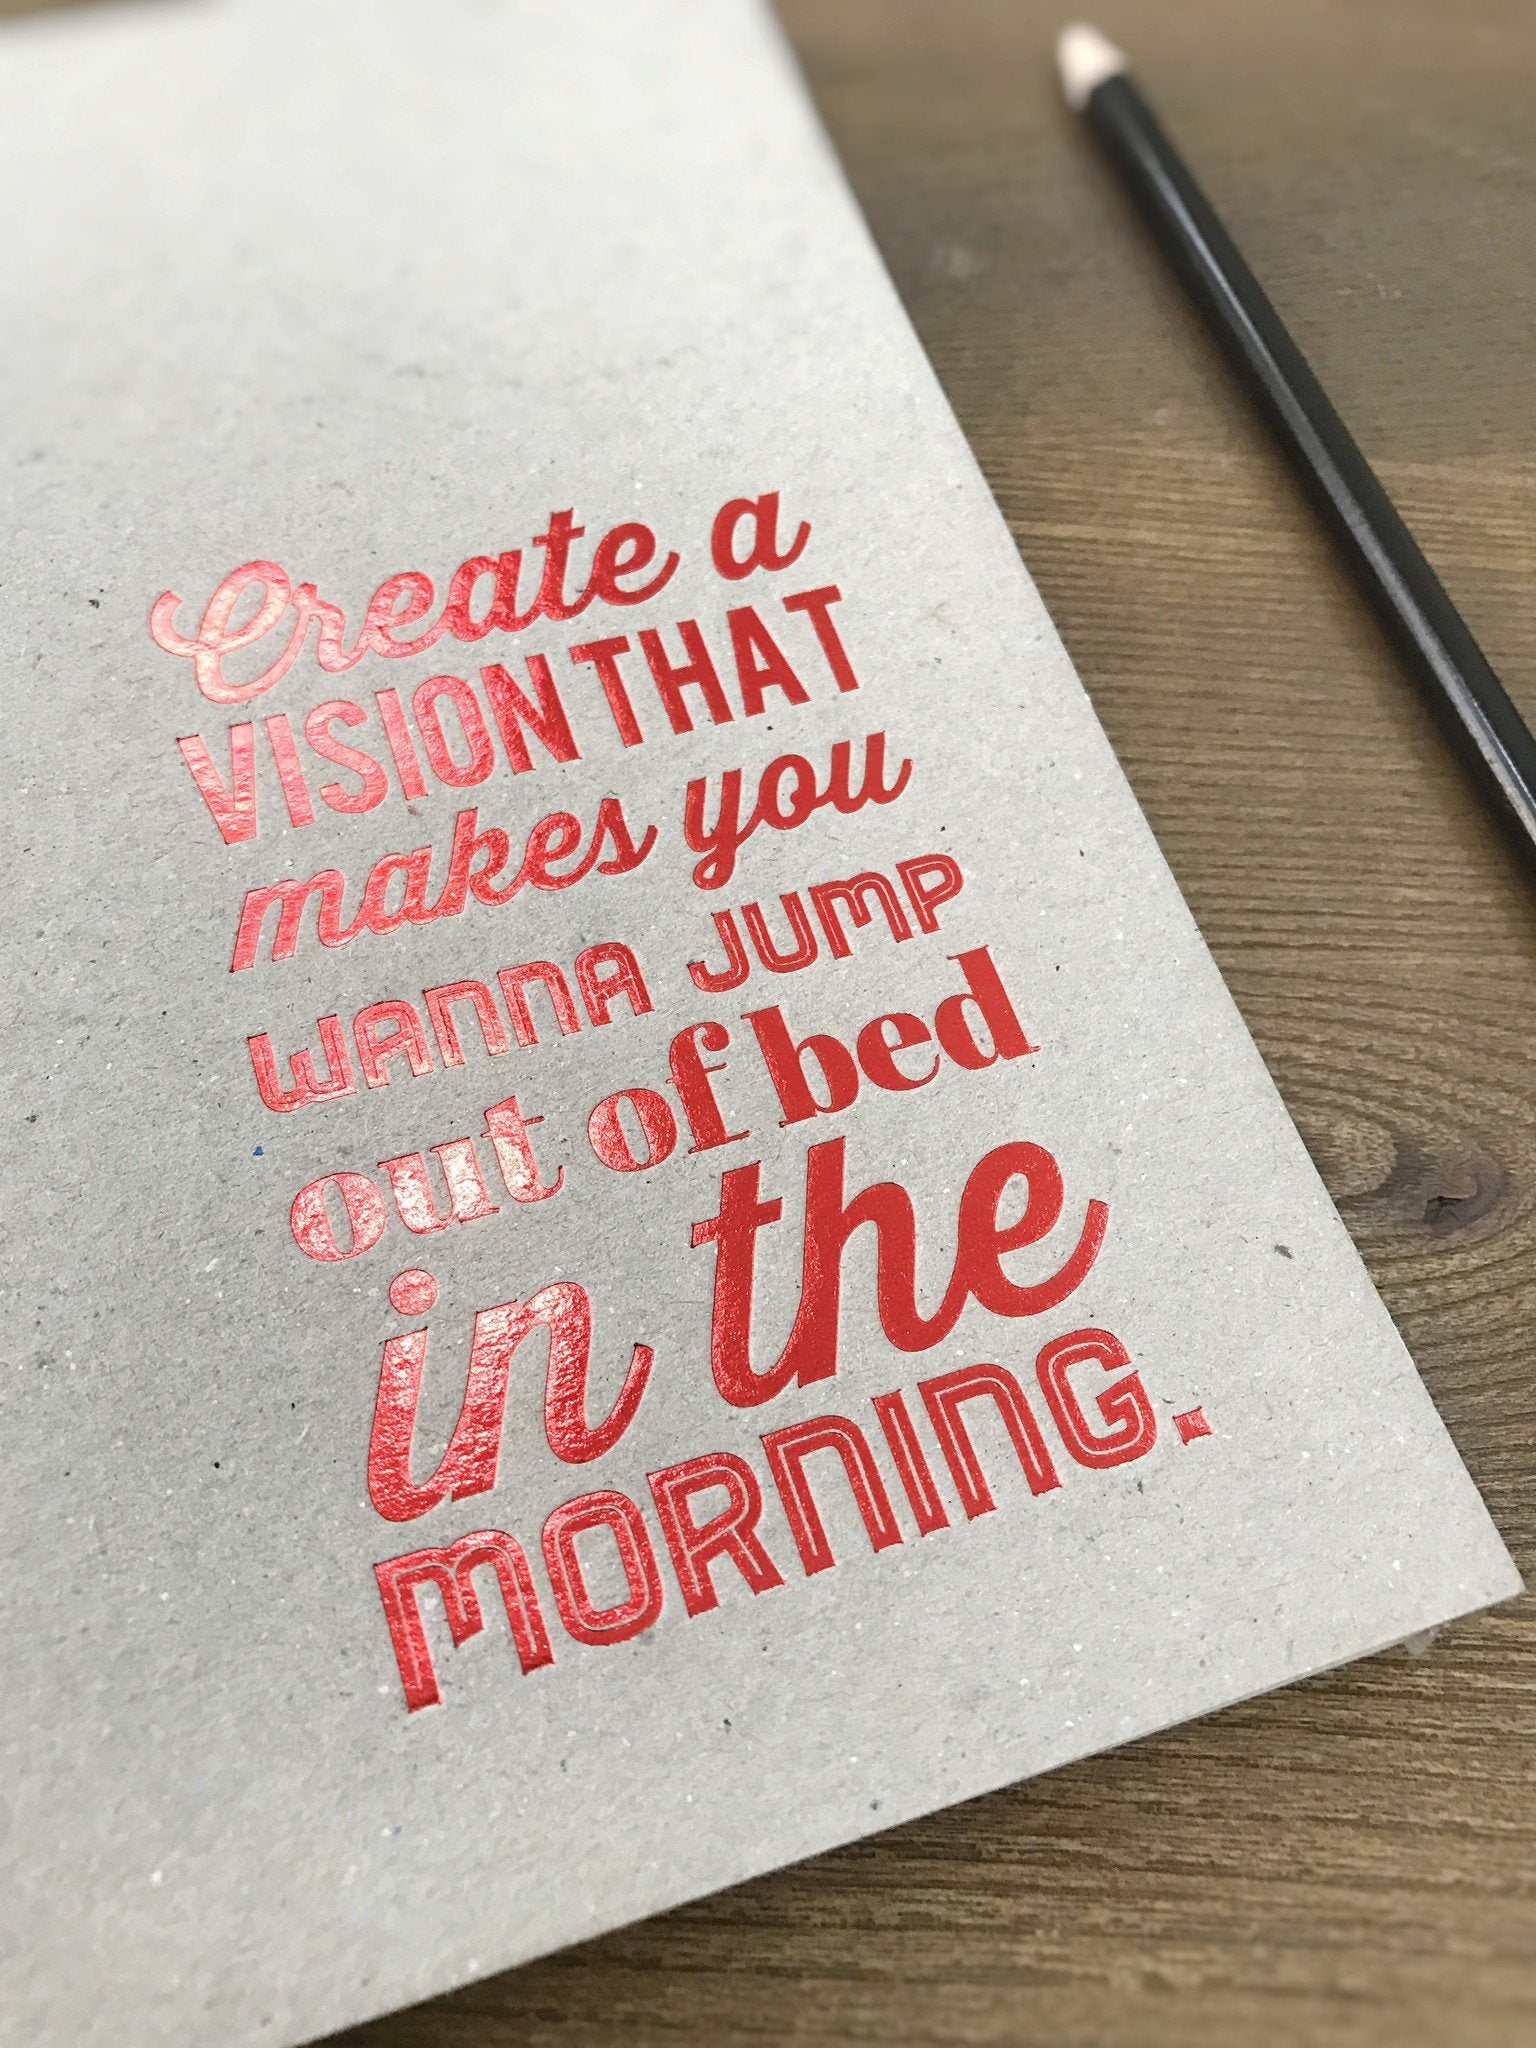 Create a
VISION THAT
makes you
WANNA JUMP
out of bed
in the
MORNING.